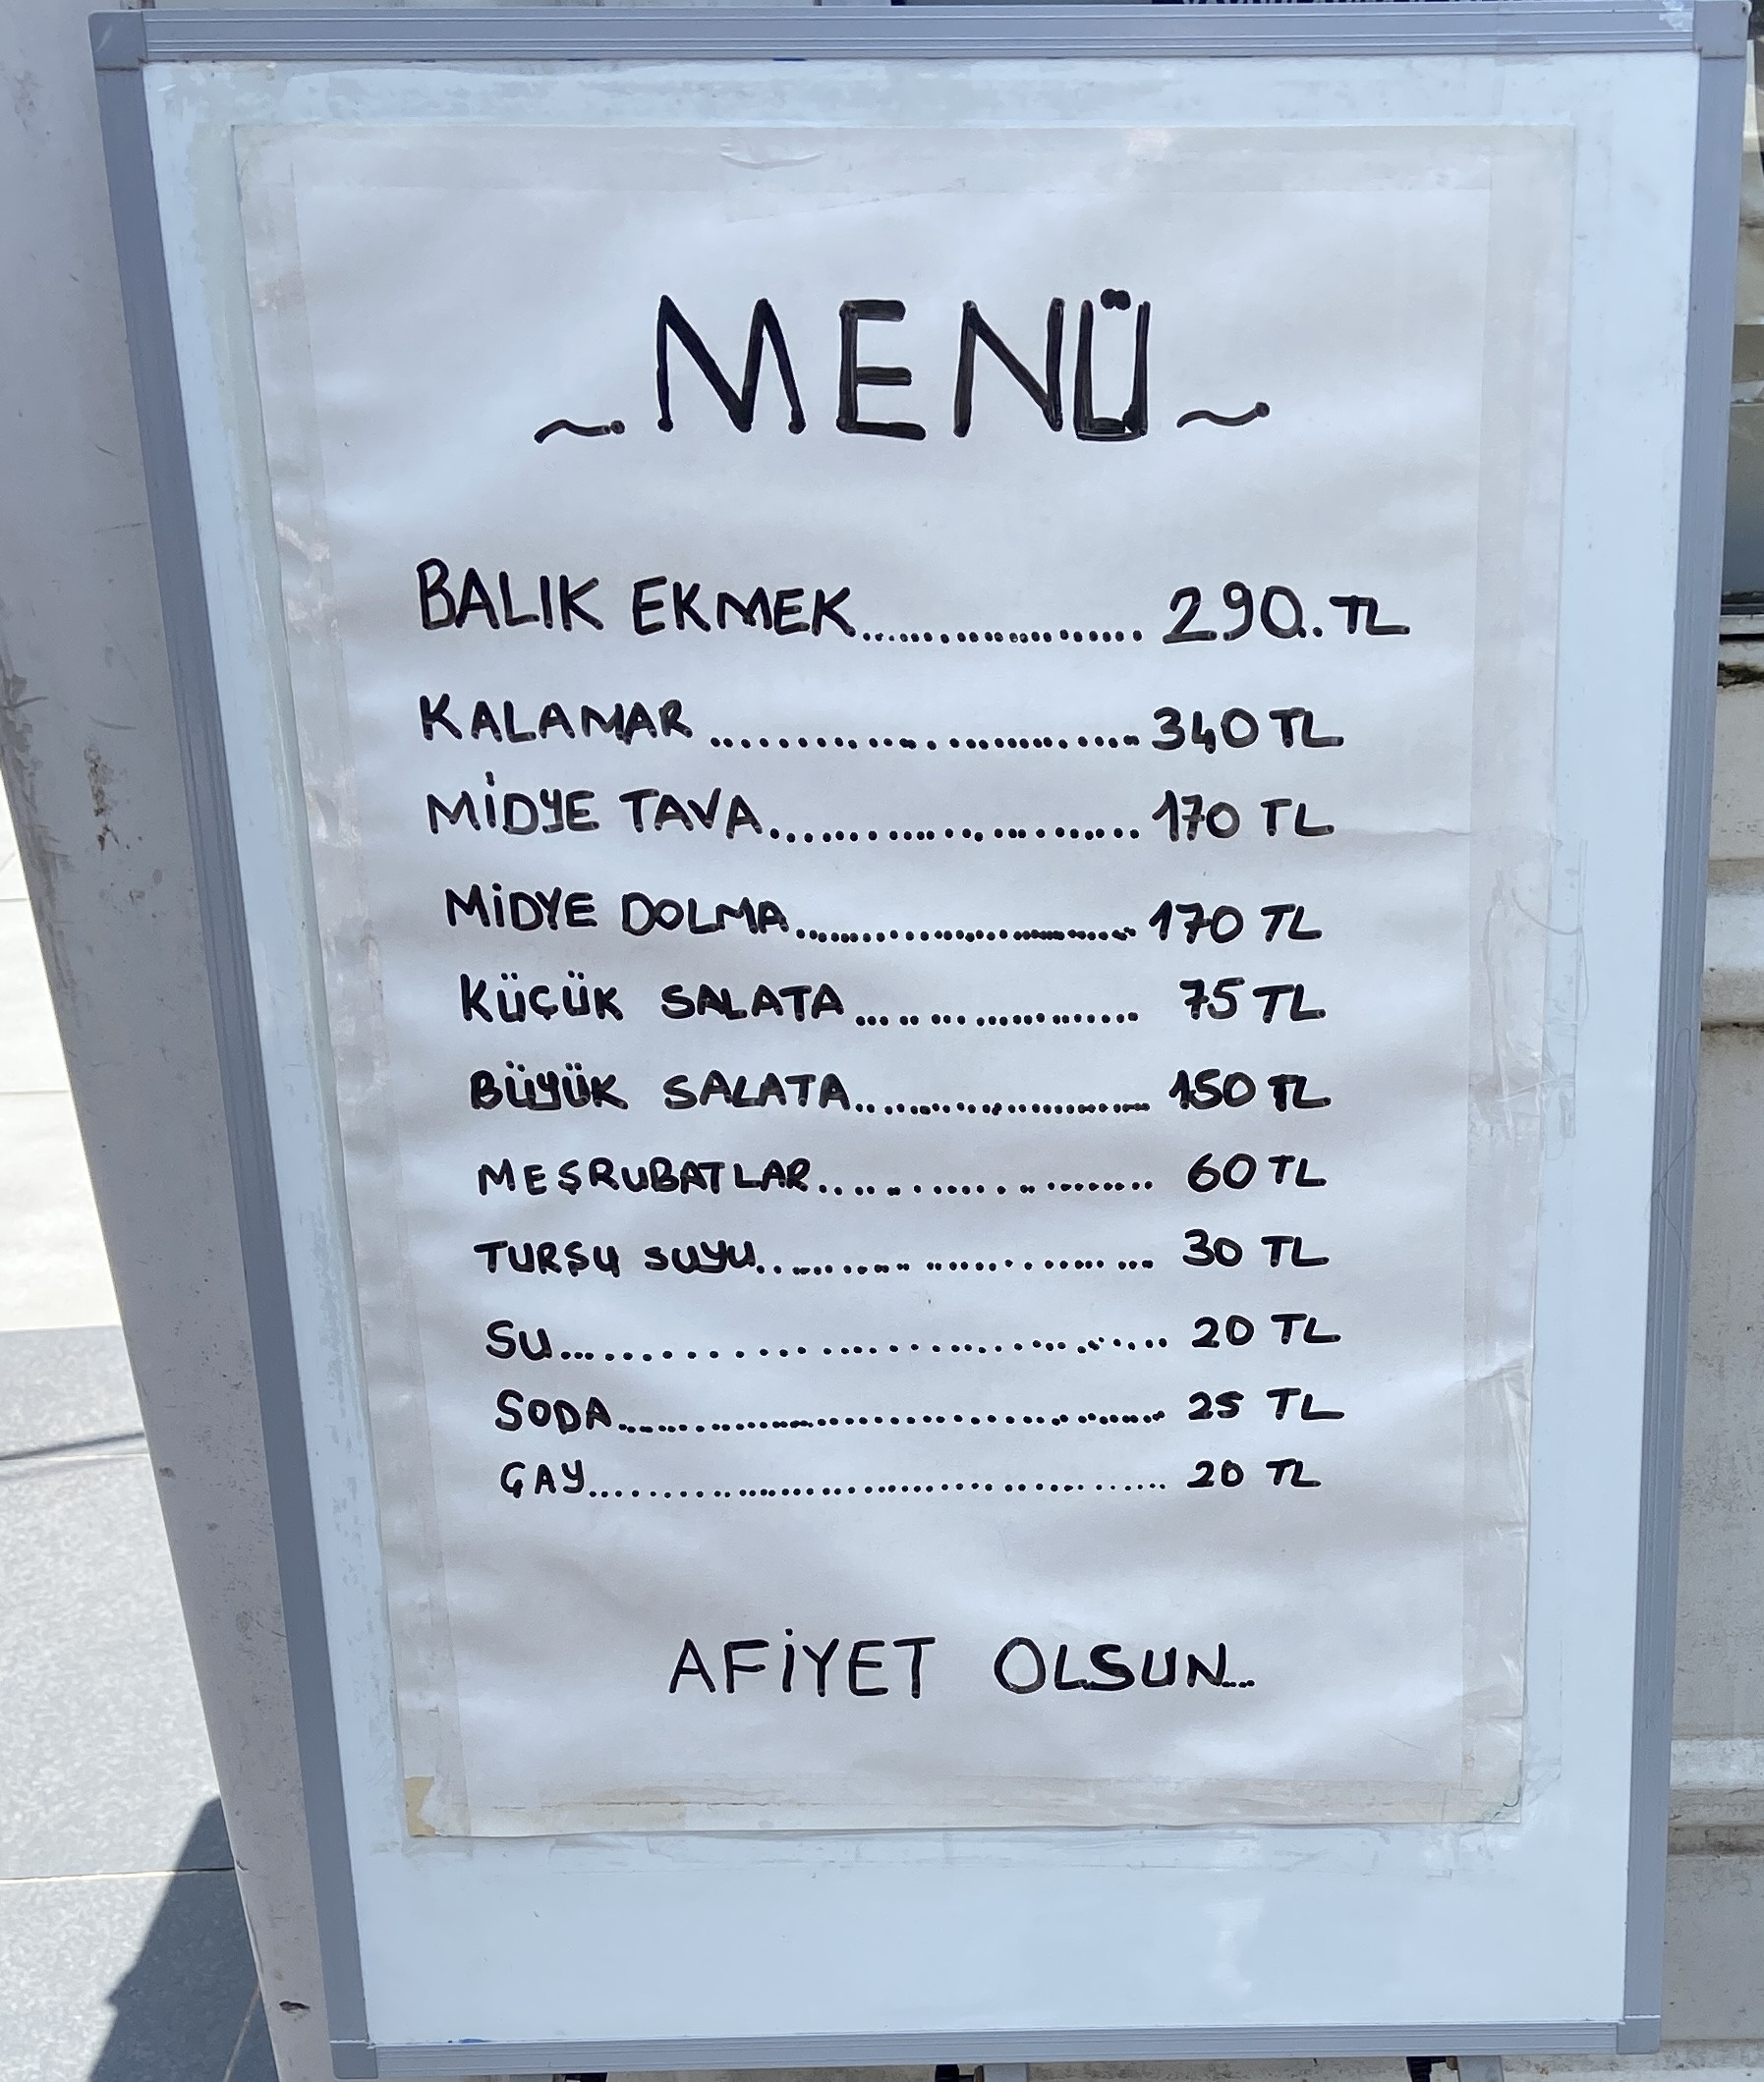 ~MENÜ~
BALIK EKMEK.................... 290.TL
KALAMAR ........................ 340 TL
MİDYE TAVA...................... 170 TL
MİDYE DOLMA..................... 170 TL
KÜÇÜK SALATA ................... 75 TL
BÜYÜK SALATA.................... 150 TL
MEŞRUBATLAR..................... 60 TL
TURŞU SUYU...................... 30 TL
SU.............................. 20 TL
SODA............................ 25 TL
ÇAY............................. 20 TL
AFİYET OLSUN...